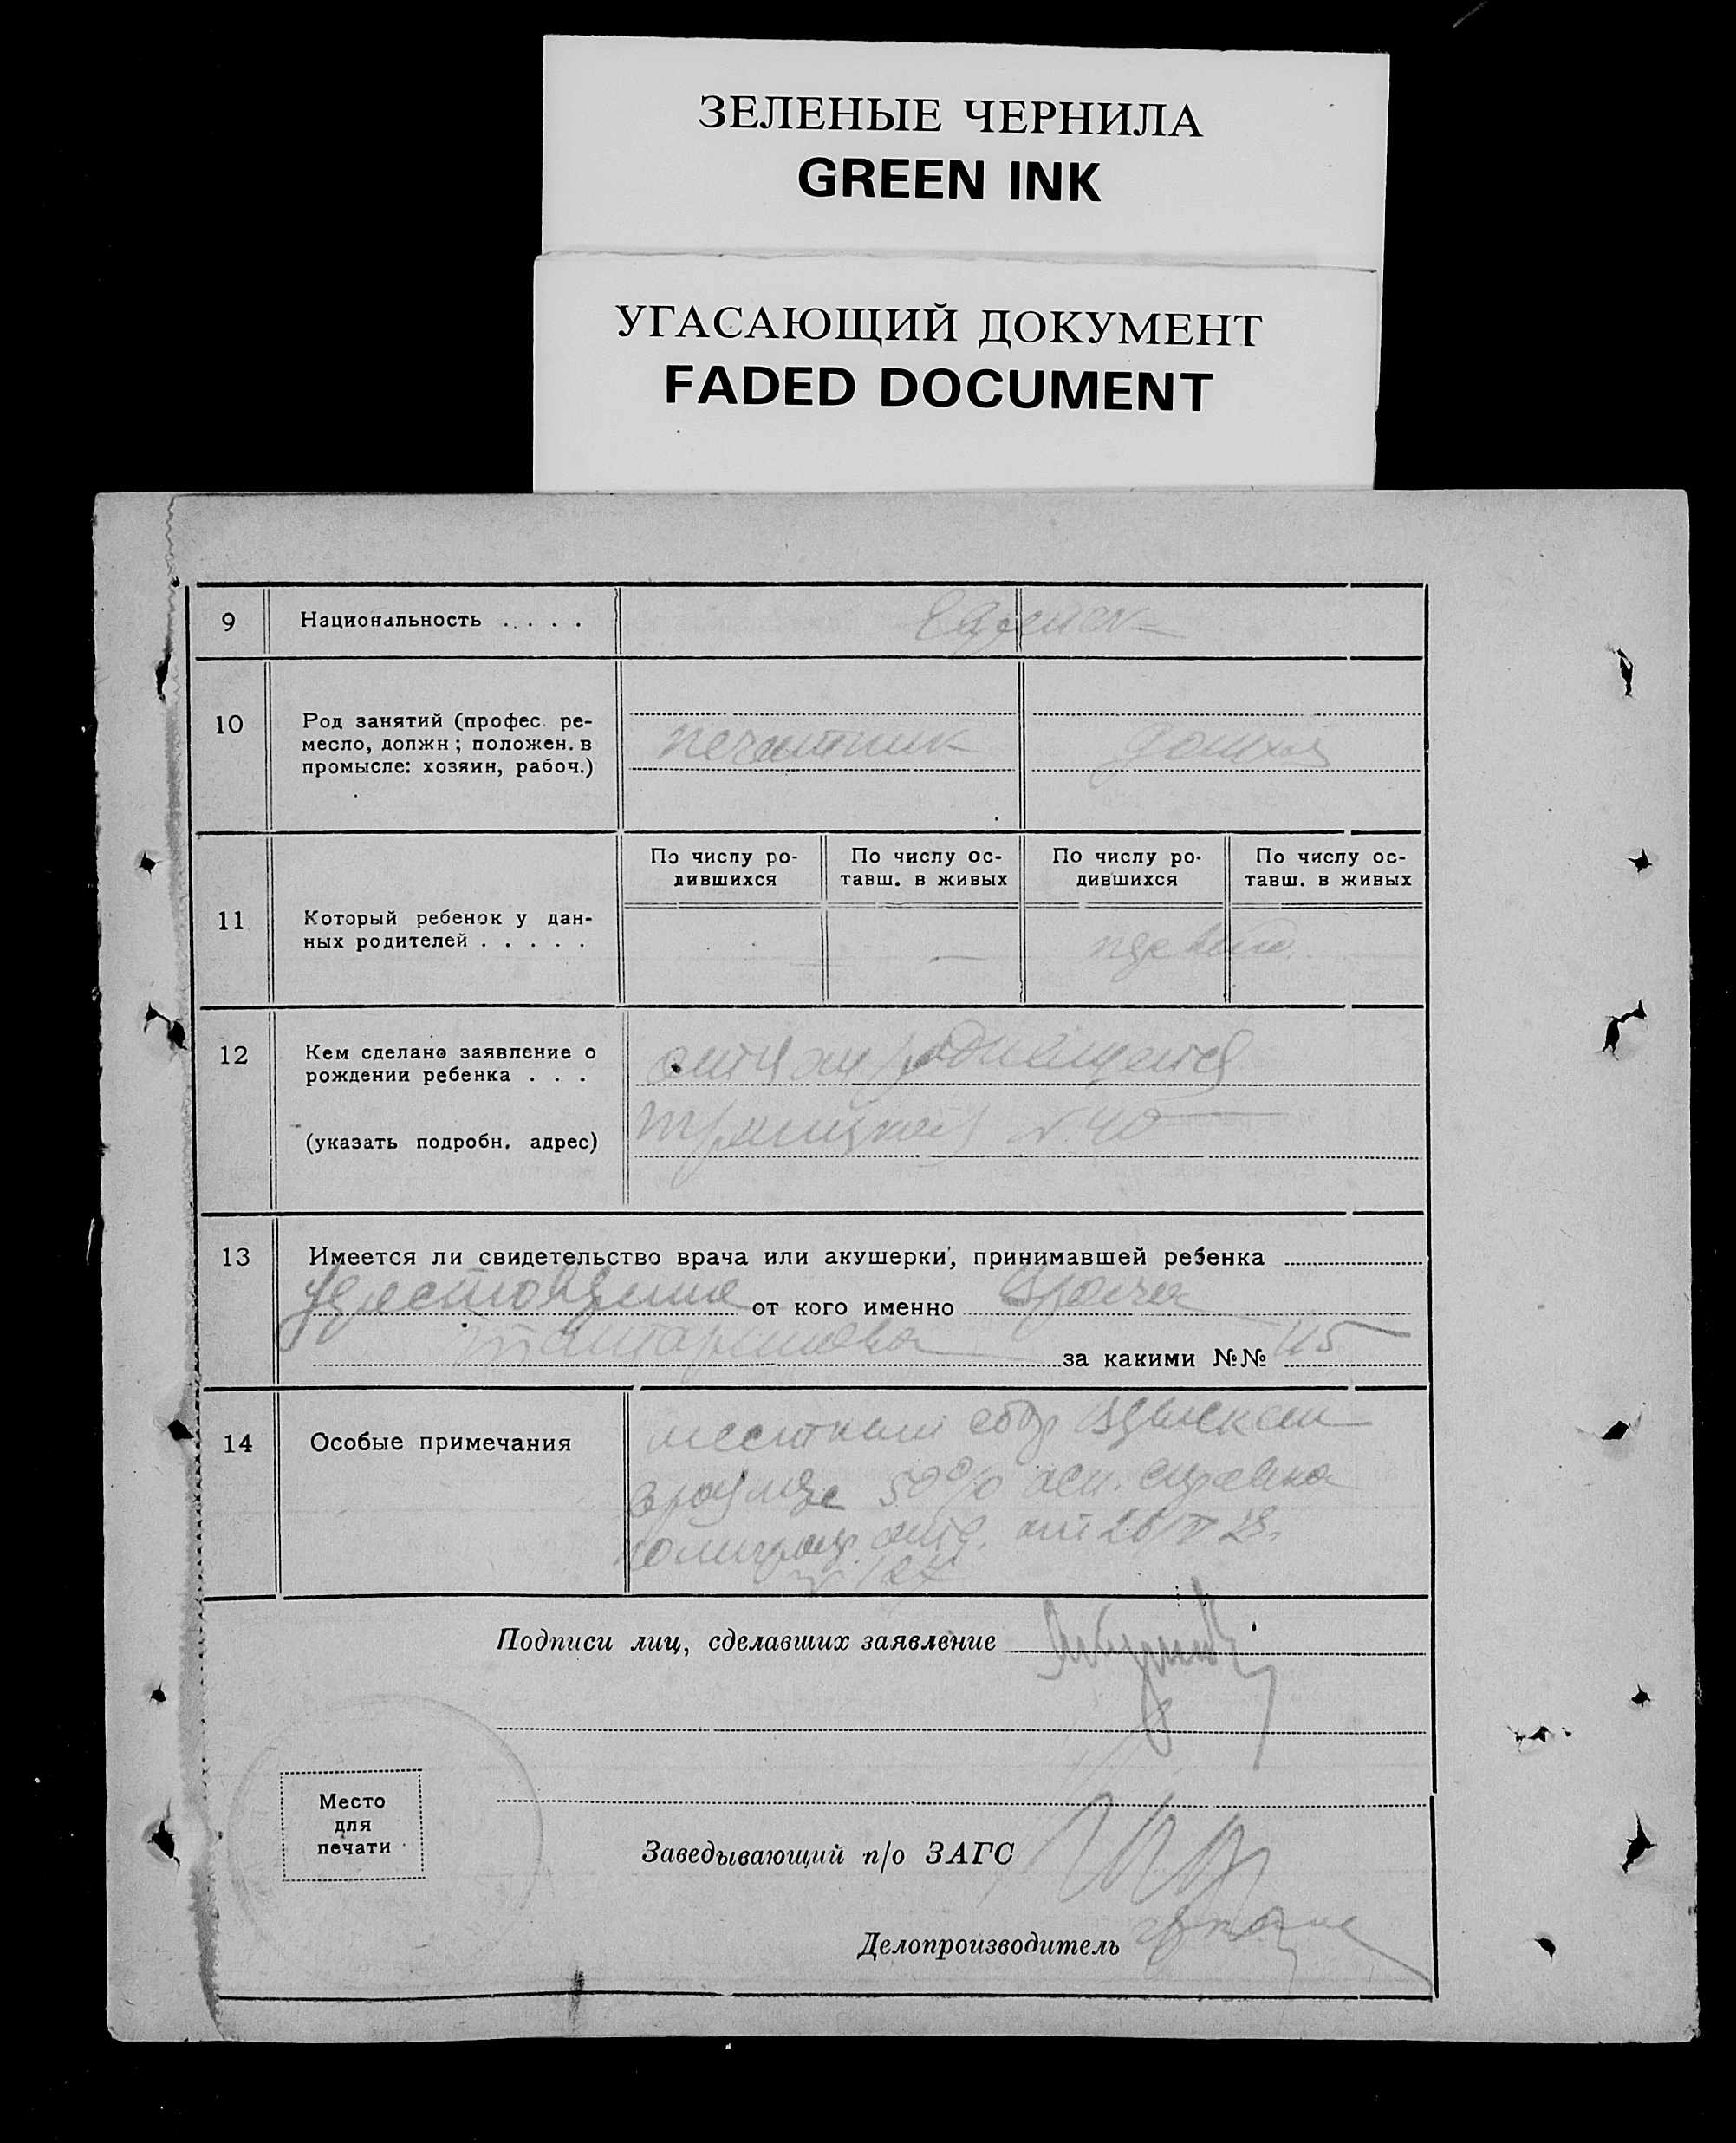 ЗЕЛЕНЫЕ ЧЕРНИЛА
GREEN INK
УГАСАЮЩИЙ ДОКУМЕНТ
FADED DOCUMENT
9 Национальность . . . .
10 Род занятий (профес. ре-
месло, должн; положен. в
промысле: хозяин, рабоч.)
печатник
домхоз
11 Который ребенок у дан-
ных родителей . . . . .
По числу ро-
дившихся
По числу ос-
тавш. в живых
По числу ро-
дившихся
По числу ос-
тавш. в живых
первый
12 Кем сделано заявление о
рождении ребенка . . .
(указать подробн. адрес)
отцом
Троицкая 40
13 Имеется ли свидетельство врача или акушерки, принимавшей ребенка
удостоверение от кого именно врача
за какими №№ 115
14 Особые примечания
местный сбор взыскан
в размере 50%
от 26
Подписи лиц, сделавших заявление
Место
для
печати
Заведывающий п/о ЗАГС
Делопроизводитель